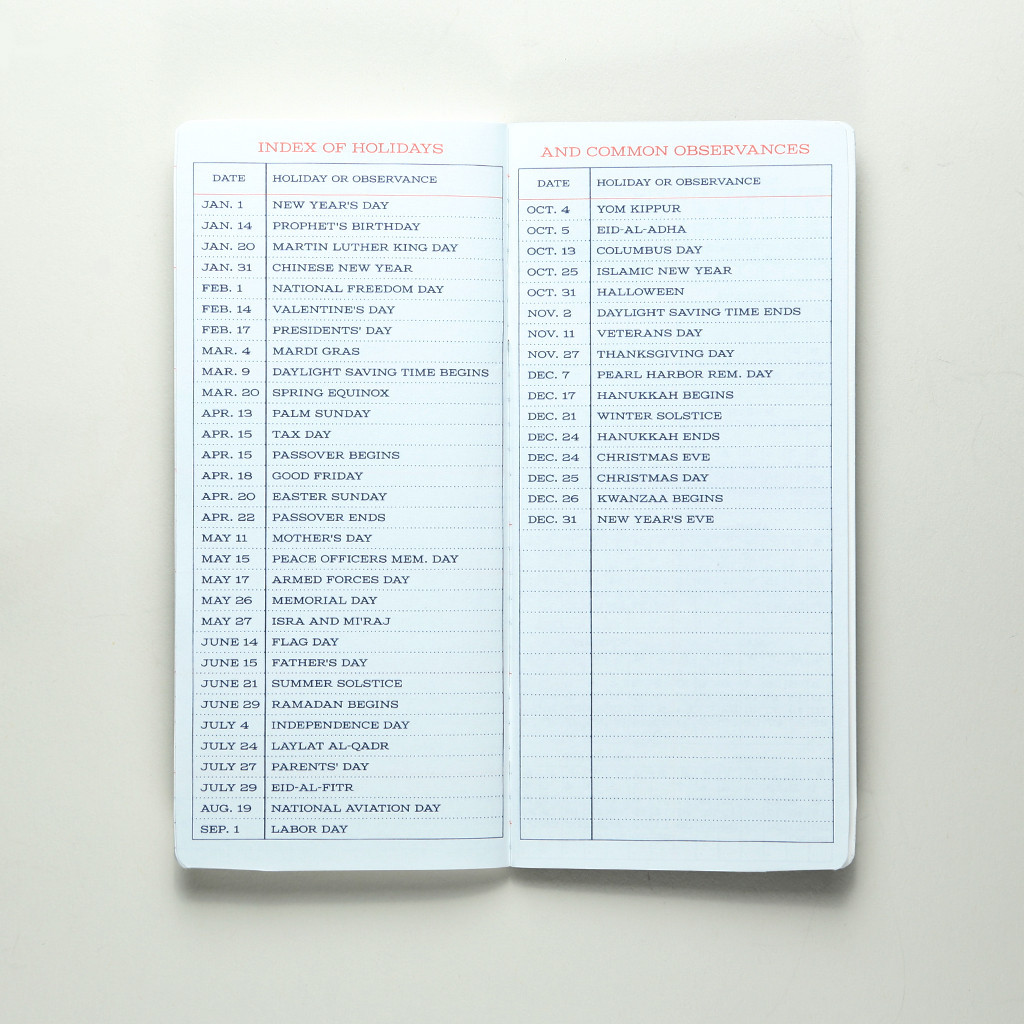 INDEX OF HOLIDAYS
DATE HOLIDAY OR OBSERVANCE
JAN. 1 NEW YEAR'S DAY
JAN. 14 PROPHET'S BIRTHDAY
JAN. 20 MARTIN LUTHER KING DAY
JAN. 31 CHINESE NEW YEAR
FEB. 1 NATIONAL FREEDOM DAY
FEB. 14 VALENTINE'S DAY
FEB. 17 PRESIDENTS' DAY
MAR. 4 MARDI GRAS
MAR. 9 DAYLIGHT SAVING TIME BEGINS
MAR. 20 SPRING EQUINOX
APR. 13 PALM SUNDAY
APR. 15 TAX DAY
APR. 15 PASSOVER BEGINS
APR. 18 GOOD FRIDAY
APR. 20 EASTER SUNDAY
APR. 22 PASSOVER ENDS
MAY 11 MOTHER'S DAY
MAY 15 PEACE OFFICERS MEM. DAY
MAY 17 ARMED FORCES DAY
MAY 26 MEMORIAL DAY
MAY 27 ISRA AND MI'RAJ
JUNE 14 FLAG DAY
JUNE 15 FATHER'S DAY
JUNE 21 SUMMER SOLSTICE
JUNE 29 RAMADAN BEGINS
JULY 4 INDEPENDENCE DAY
JULY 24 LAYLAT AL-QADR
JULY 27 PARENTS' DAY
JULY 29 EID-AL-FITR
AUG. 19 NATIONAL AVIATION DAY
SEP. 1 LABOR DAY
AND COMMON OBSERVANCES
DATE HOLIDAY OR OBSERVANCE
OCT. 4 YOM KIPPUR
OCT. 5 EID-AL-ADHA
OCT. 13 COLUMBUS DAY
OCT. 25 ISLAMIC NEW YEAR
OCT. 31 HALLOWEEN
NOV. 2 DAYLIGHT SAVING TIME ENDS
NOV. 11 VETERANS DAY
NOV. 27 THANKSGIVING DAY
DEC. 7 PEARL HARBOR REM. DAY
DEC. 17 HANUKKAH BEGINS
DEC. 21 WINTER SOLSTICE
DEC. 24 HANUKKAH ENDS
DEC. 24 CHRISTMAS EVE
DEC. 25 CHRISTMAS DAY
DEC. 26 KWANZAA BEGINS
DEC. 31 NEW YEAR'S EVE